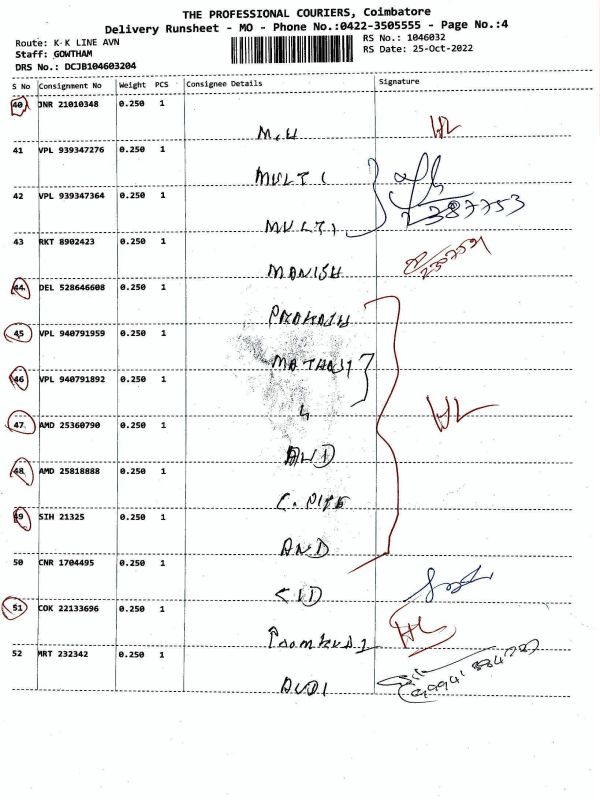 THE PROFESSIONAL COURIERS, Coimbatore
Delivery Runsheet - MO - Phone No.:0422-3505555 - Page No.:4
Route: K-K LINE AVN
RS No.: 1046032
Staff: GOWTHAM
RS Date: 25-Oct-2022
DRS No.: DCJB104603204
S No Consignment No Weight PCS Consignee Details Signature
40 JNR 21010348 0.250 1
M.H HL
41 VPL 939347276 0.250 1
MULTI
42 VPL 939347364 0.250 1
2387753
MULTI
43 RKT 8902423 0.250 1
MANISH
44 DEL 528646608 0.250 1
PRAKASH
45 VPL 940791959 0.250 1
46 VPL 940791892 0.250 1
HL
47 AMD 25360790 0.250 1
48 AMD 25818888 0.250 1
49 SIH 21325 0.250 1
AND
50 CNR 1704495 0.250 1
CID
51 COK 22133696 0.250 1
HL
52 MRT 232342 0.250 1
AUDI